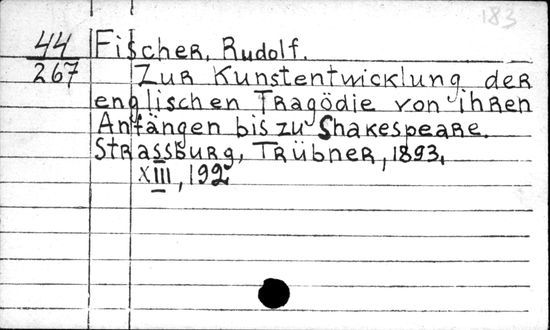 183
44 Fischer, Rudolf.
267 Zur Kunstentwicklung der
englischen Tragödie von ihren
Anfängen bis zu Shakespeare.
Strassburg, Trübner, 1893.
XIII, 192